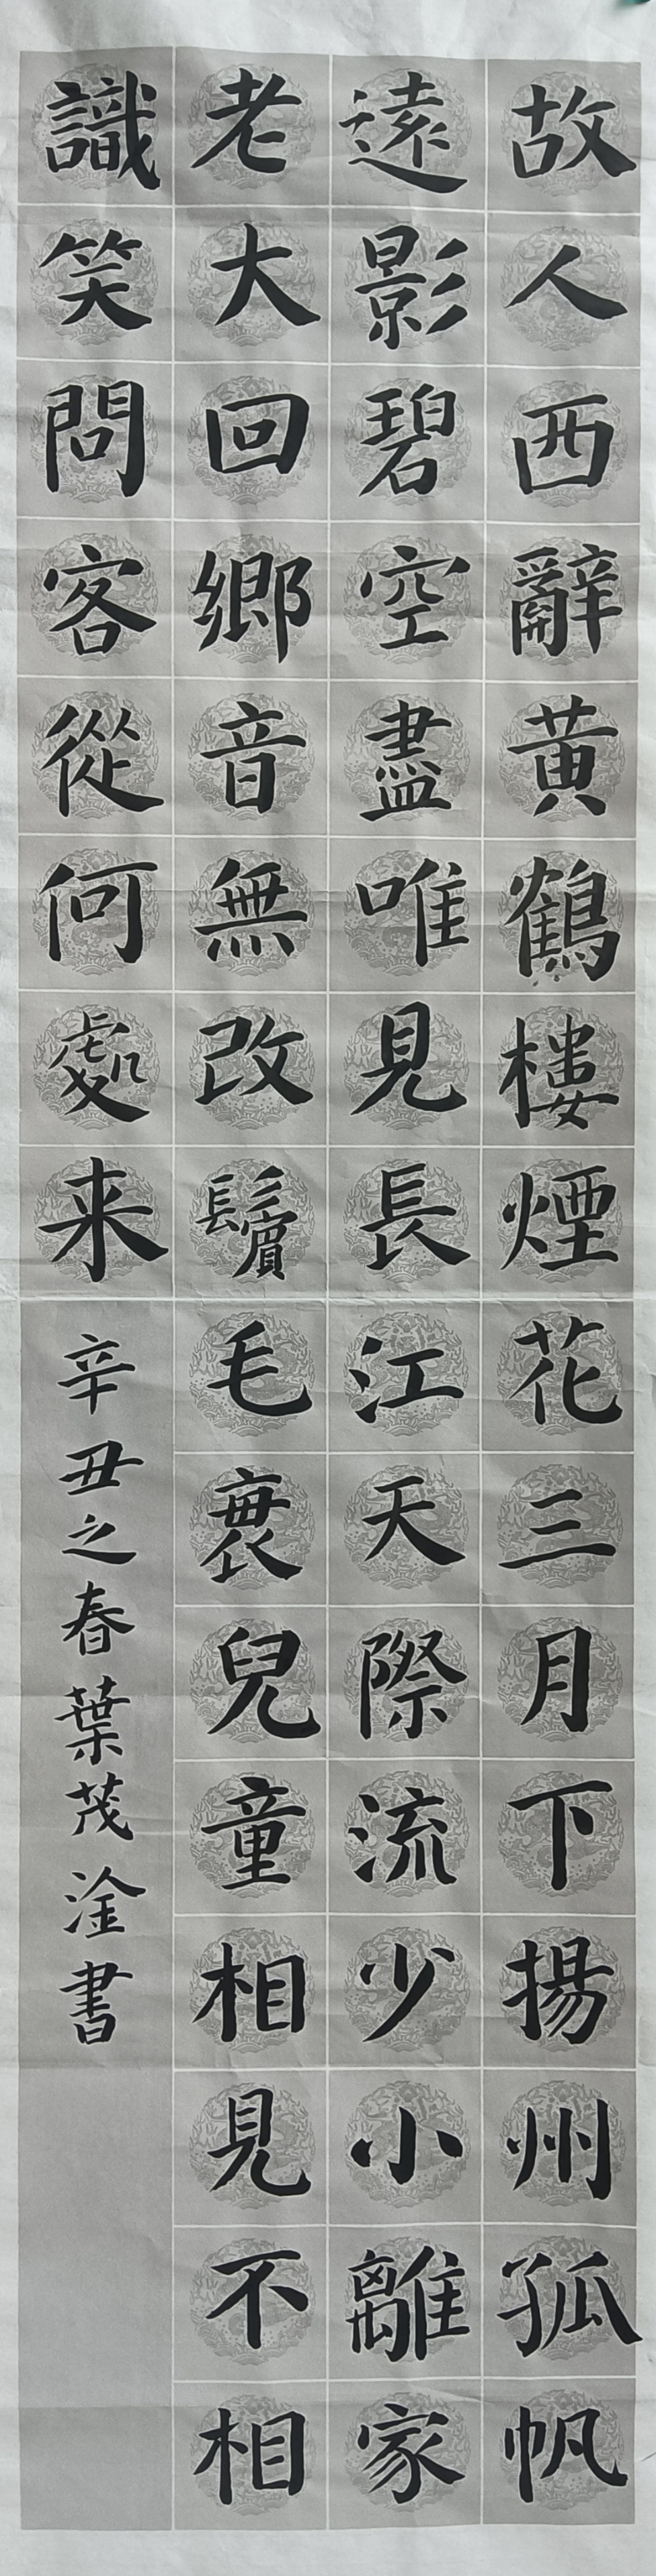 故人西辭黄鶴樓煙花三月下揚州孤帆
遠影碧空盡唯見長江天際流少小離家
老大回鄉音無改鬢毛衰兒童相見不相
識笑問客從何處来
辛丑之春葉茂淦書